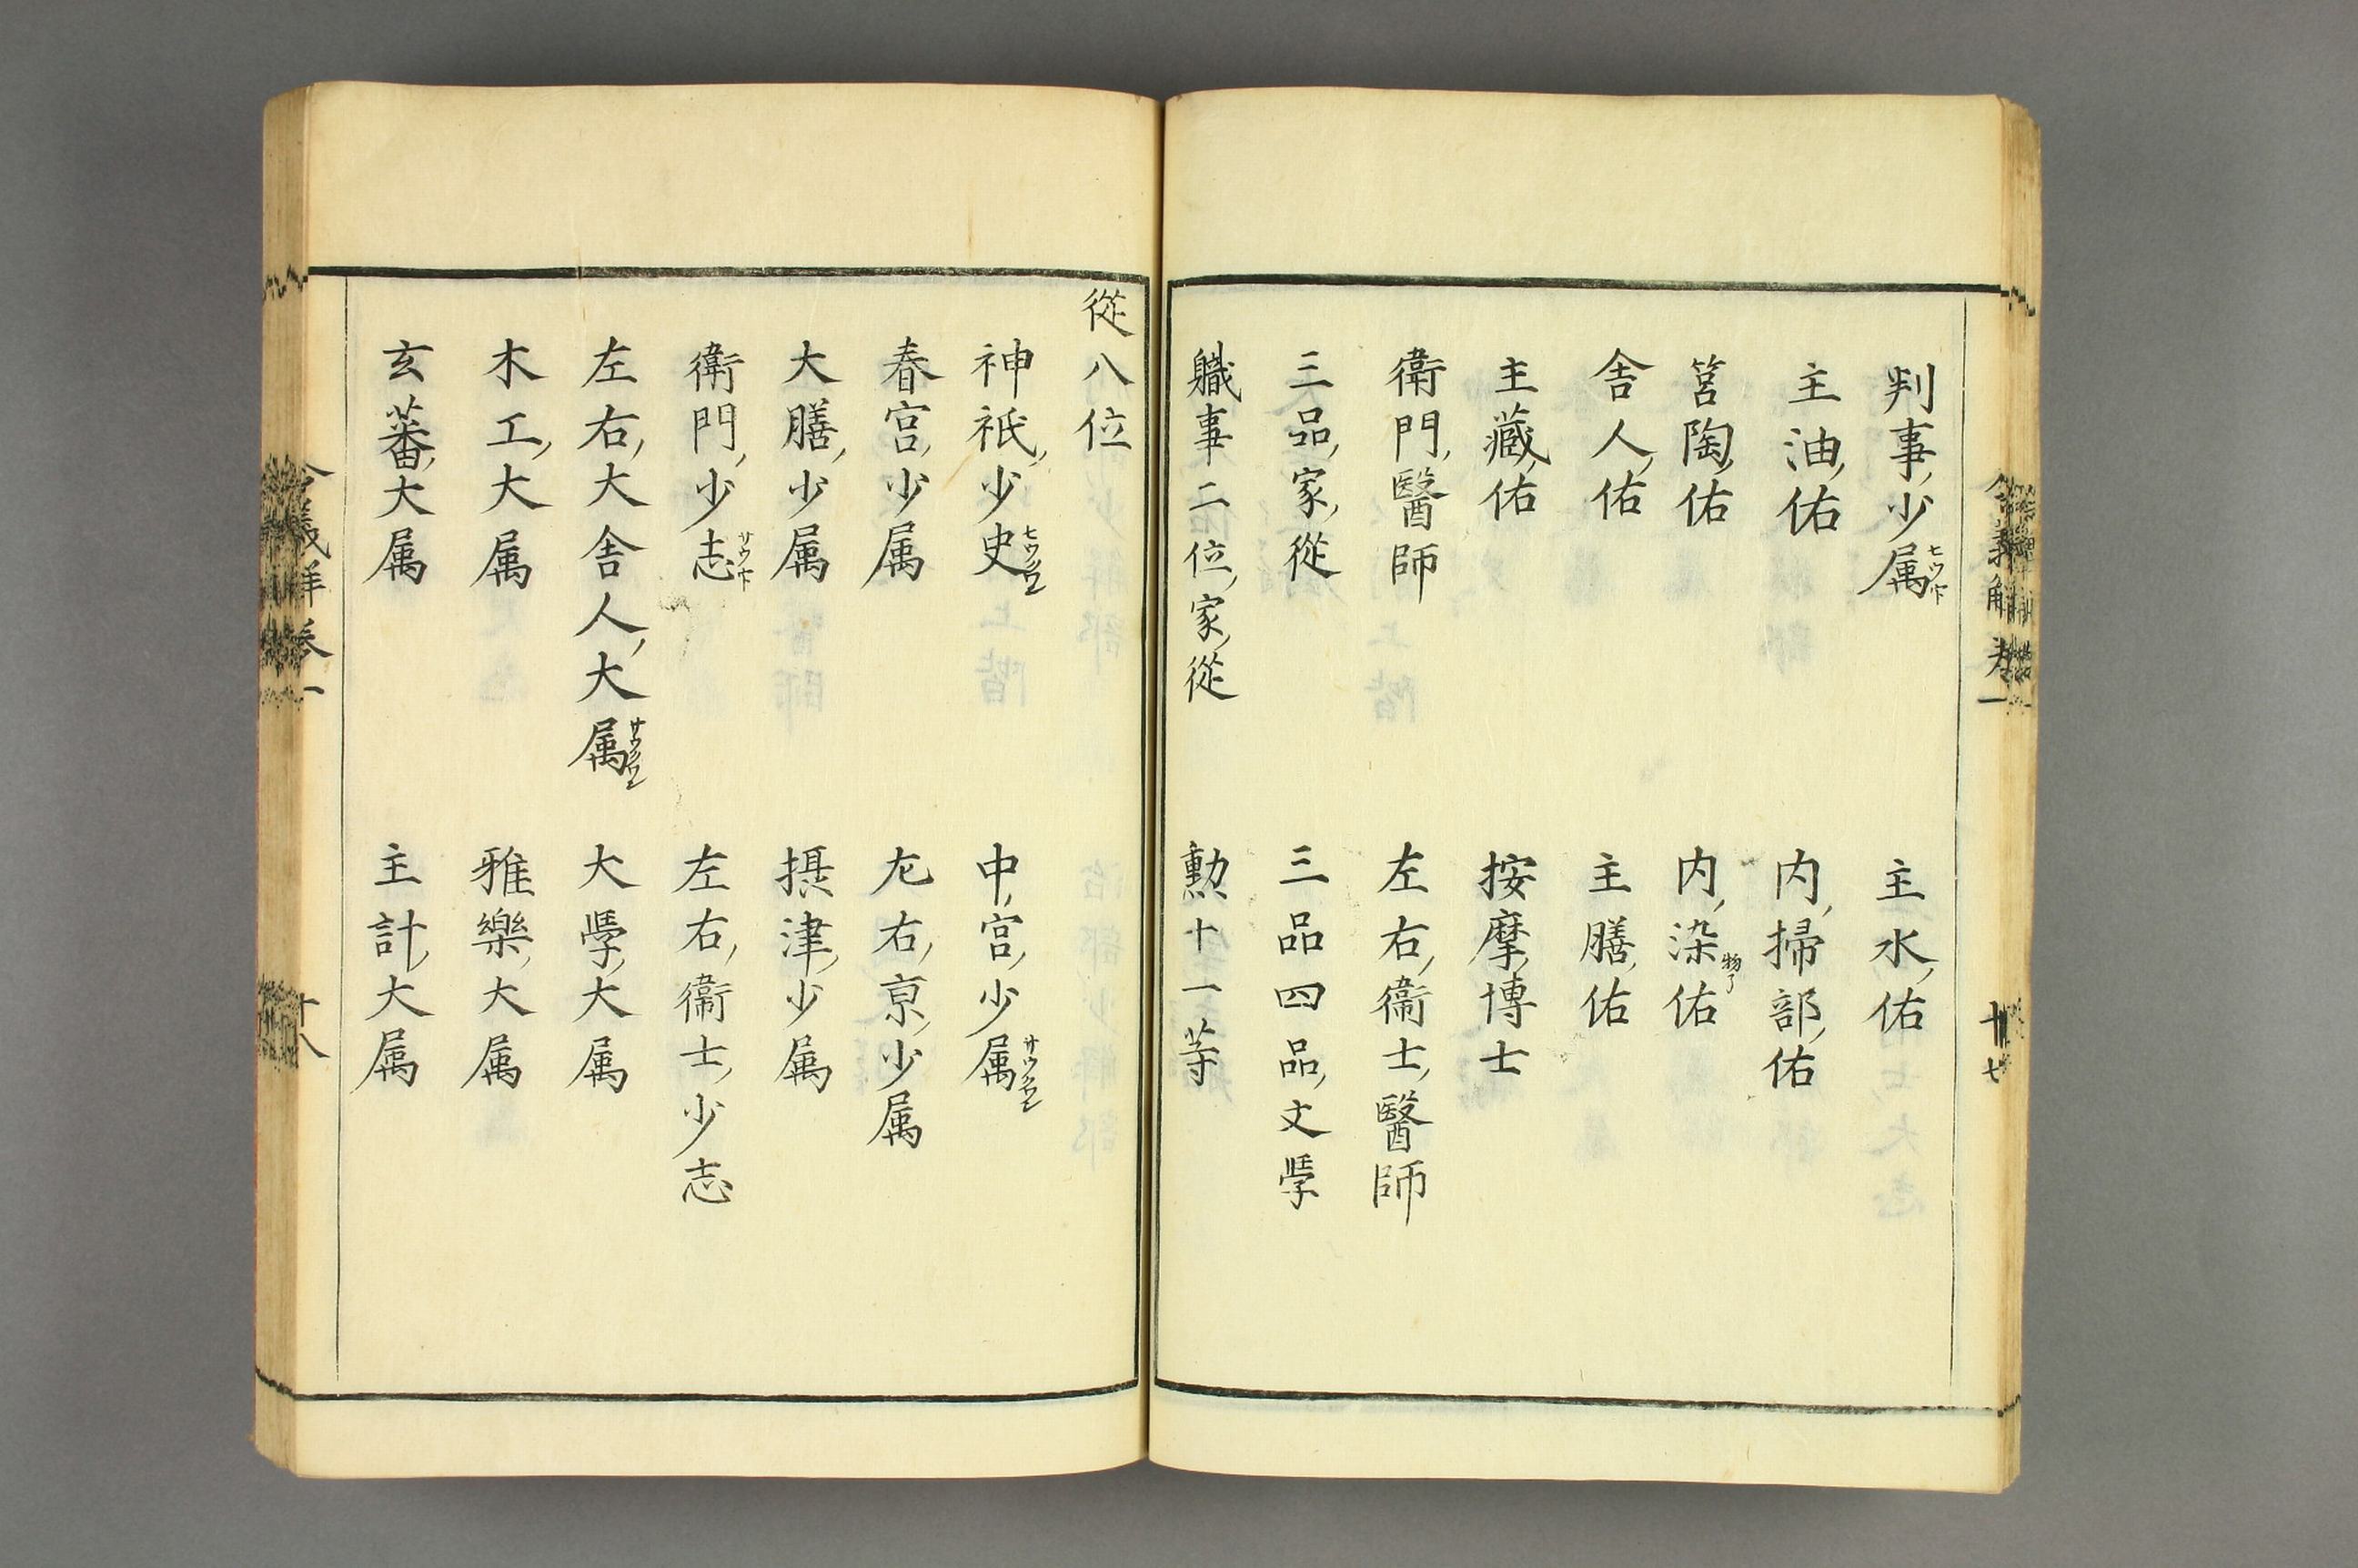 判事少属 主水佑
主油佑 内掃部佑
筥陶佑 内染佑
舎人佑 主膳佑
主藏佑 按摩博士
衛門醫師 左右衛士醫師
三品家從 三品四品文学
軄事二位家從 勲十一等
令義解卷一 十七
從八位
神祇少史 中宮少属
春宮少属 左右亰少属
大膳少属 摂津少属
衛門少志 左右衛士少志
左右大舎人大属 大学大属
木工大属 雅樂大属
玄蕃大属 主計大属
令義解卷一 十八